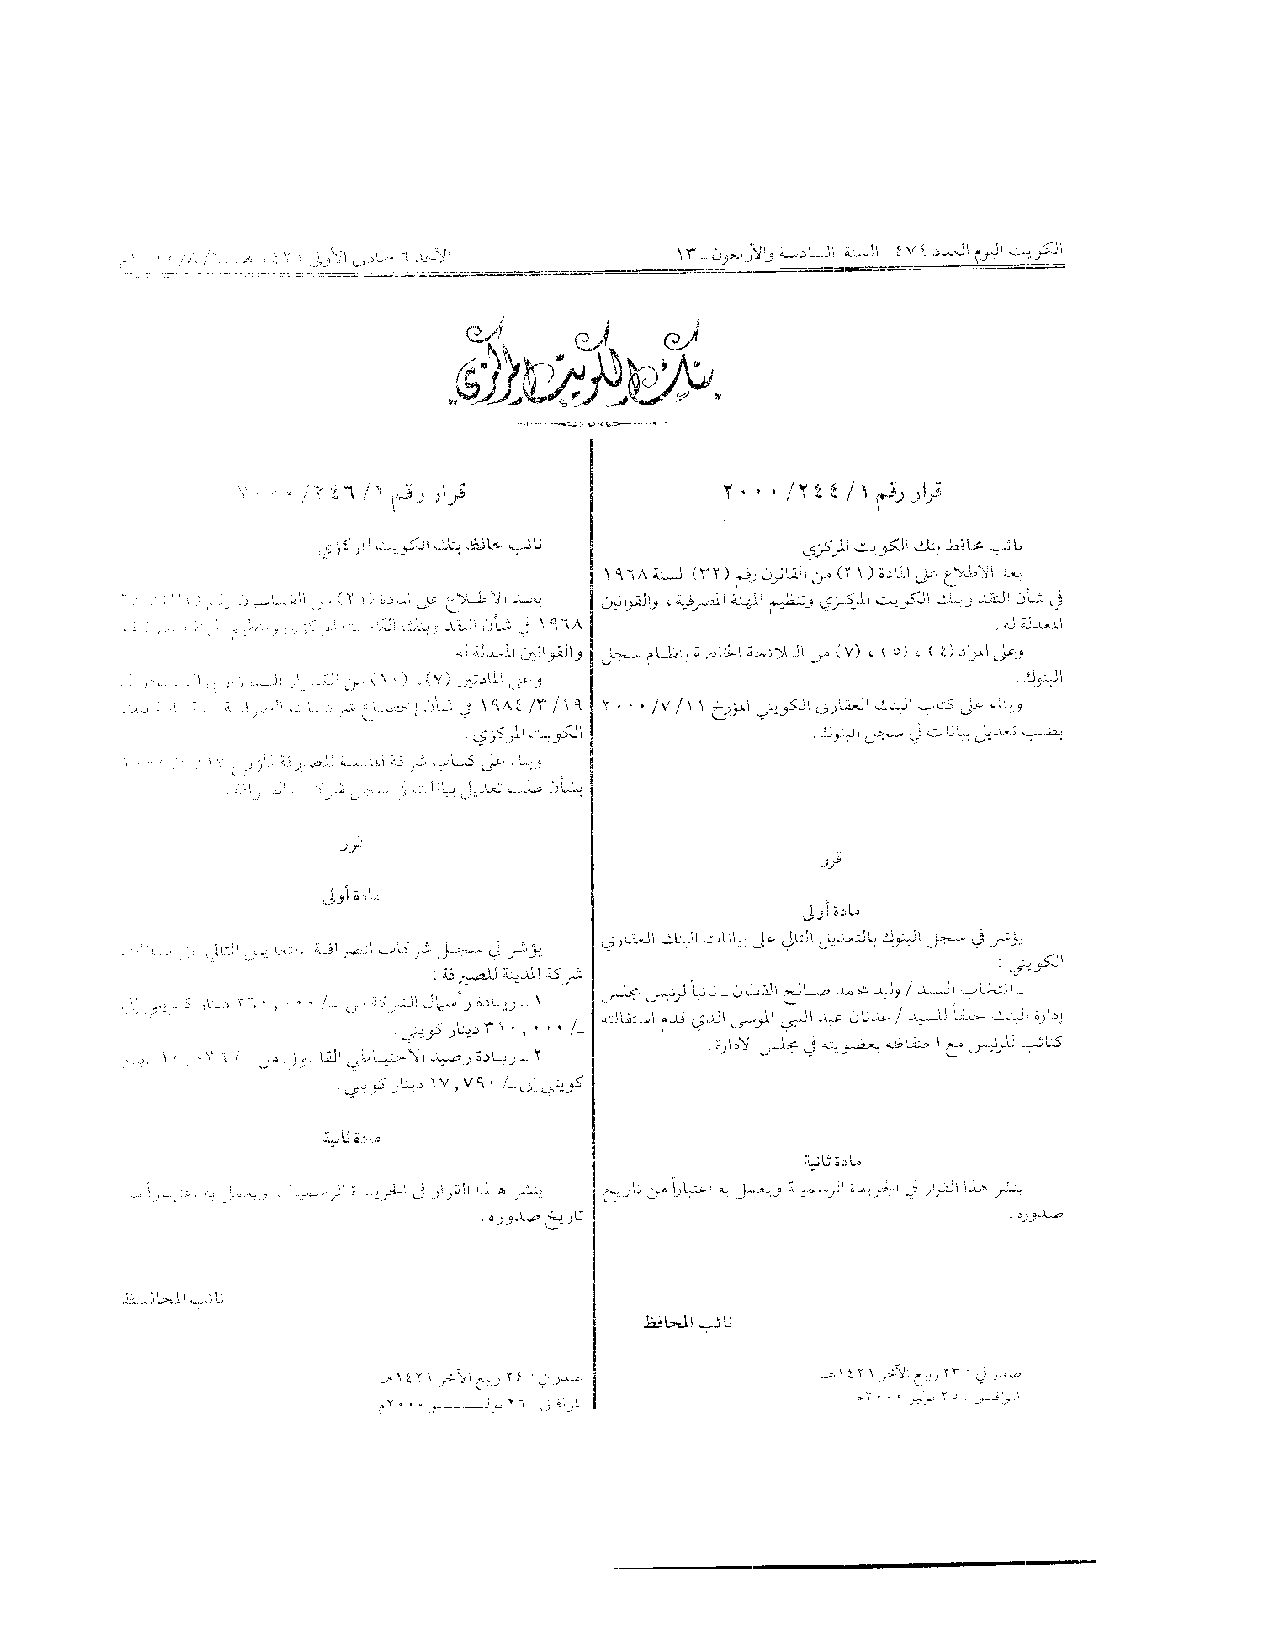 الكويت اليوم العدد ٤٧٤ السنة السادسة والأربعون ـ ١٣
الأحد ٦ جمادى الأولى
بنك الكويت المركزي
قرار رقم ٢٠٠٠/٢٤٤/١
نائب محافظ بنك الكويت المركزي
بعد الاطلاع على المادة (٢١) من القانون رقم (٣٢) لسنة ١٩٦٨
في شأن النقد وبنك الكويت المركزي وتنظيم المهنة المصرفية، والقوانين
المعدلة له.
وعلى المواد (٤)، (٥)، (٧) من اللائحة الخاصة بنظام سجل
البنوك.
وبناء على كتاب البنك العقاري الكويتي المؤرخ ٢٠٠٠/٧/١١
بطلب تعديل بيانات في سجل البنوك.
قرر
مادة أولى
يؤشر في سجل البنوك بالتعديل التالي على بيانات البنك العقاري
الكويتي :
ـ انتخاب السيد / وليد محمد صالح ـ نائباً لرئيس مجلس
إدارة البنك خلفاً للسيد / عدنان عبد النبي الموسى الذي قدم استقالته
كنائب للرئيس مع احتفاظه بعضويته في مجلس الإدارة.
مادة ثانية
ينشر هذا القرار في الجريدة الرسمية ويعمل به اعتباراً من تاريخ
صدوره.
نائب المحافظ
صدر في : ٢٣ ربيع الآخر ١٤٢١هـ
الموافق : ٢٥ يوليو ٢٠٠٠م
قرار رقم ٢٠٠٠/٢٤٦/١
نائب محافظ بنك الكويت المركزي
بعد الاطلاع على المادة (٢١) من القانون رقم
١٩٦٨ في شأن النقد وبنك الكويت المركزي وتنظيم
والقوانين المعدلة له
وعلى المادتين (٧)، (١٠) من القرار
١٩٨٤/٣/١٩ في شأن إخضاع شركات الصرافة
الكويت المركزي.
وبناء على كتاب شركة المدينة للصيرفة المؤرخ
بشأن طلب تعديل بيانات في سجل شركات الصرافة.
قرر
مادة أولى
يؤشر في سجل شركات الصرافة بالتعديل التالي
شركة المدينة للصيرفة :
١ ـ زيادة رأسمال الشركة من ـ/٢٦٠,٠٠٠ دينار كويتي إلى
ـ/٣١٠,٠٠٠ دينار كويتي.
٢ ـ زيادة رصيد الاحتياطي القانوني من
كويتي إلى ـ/١٧,٧٩٠ دينار كويتي.
مادة ثانية
ينشر هذا القرار في الجريدة الرسمية، ويعمل به اعتباراً من
تاريخ صدوره.
نائب المحافظ
صدر في : ٢٤ ربيع الآخر ١٤٢١هـ
الموافق : ٢٦ يوليو ٢٠٠٠م